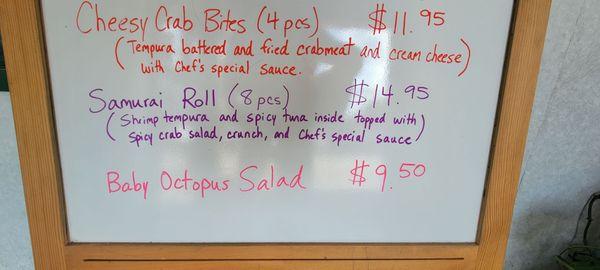 Cheesy Crab Bites (4 pcs) $11.95
(Tempura battered and fried crabmeat and cream cheese)
with Chef's special sauce.
Samurai Roll (8 pcs) $14.95
(Shrimp tempura and spicy tuna inside topped with)
spicy crab salad, crunch, and Chef's special sauce
Baby Octopus Salad $9.50